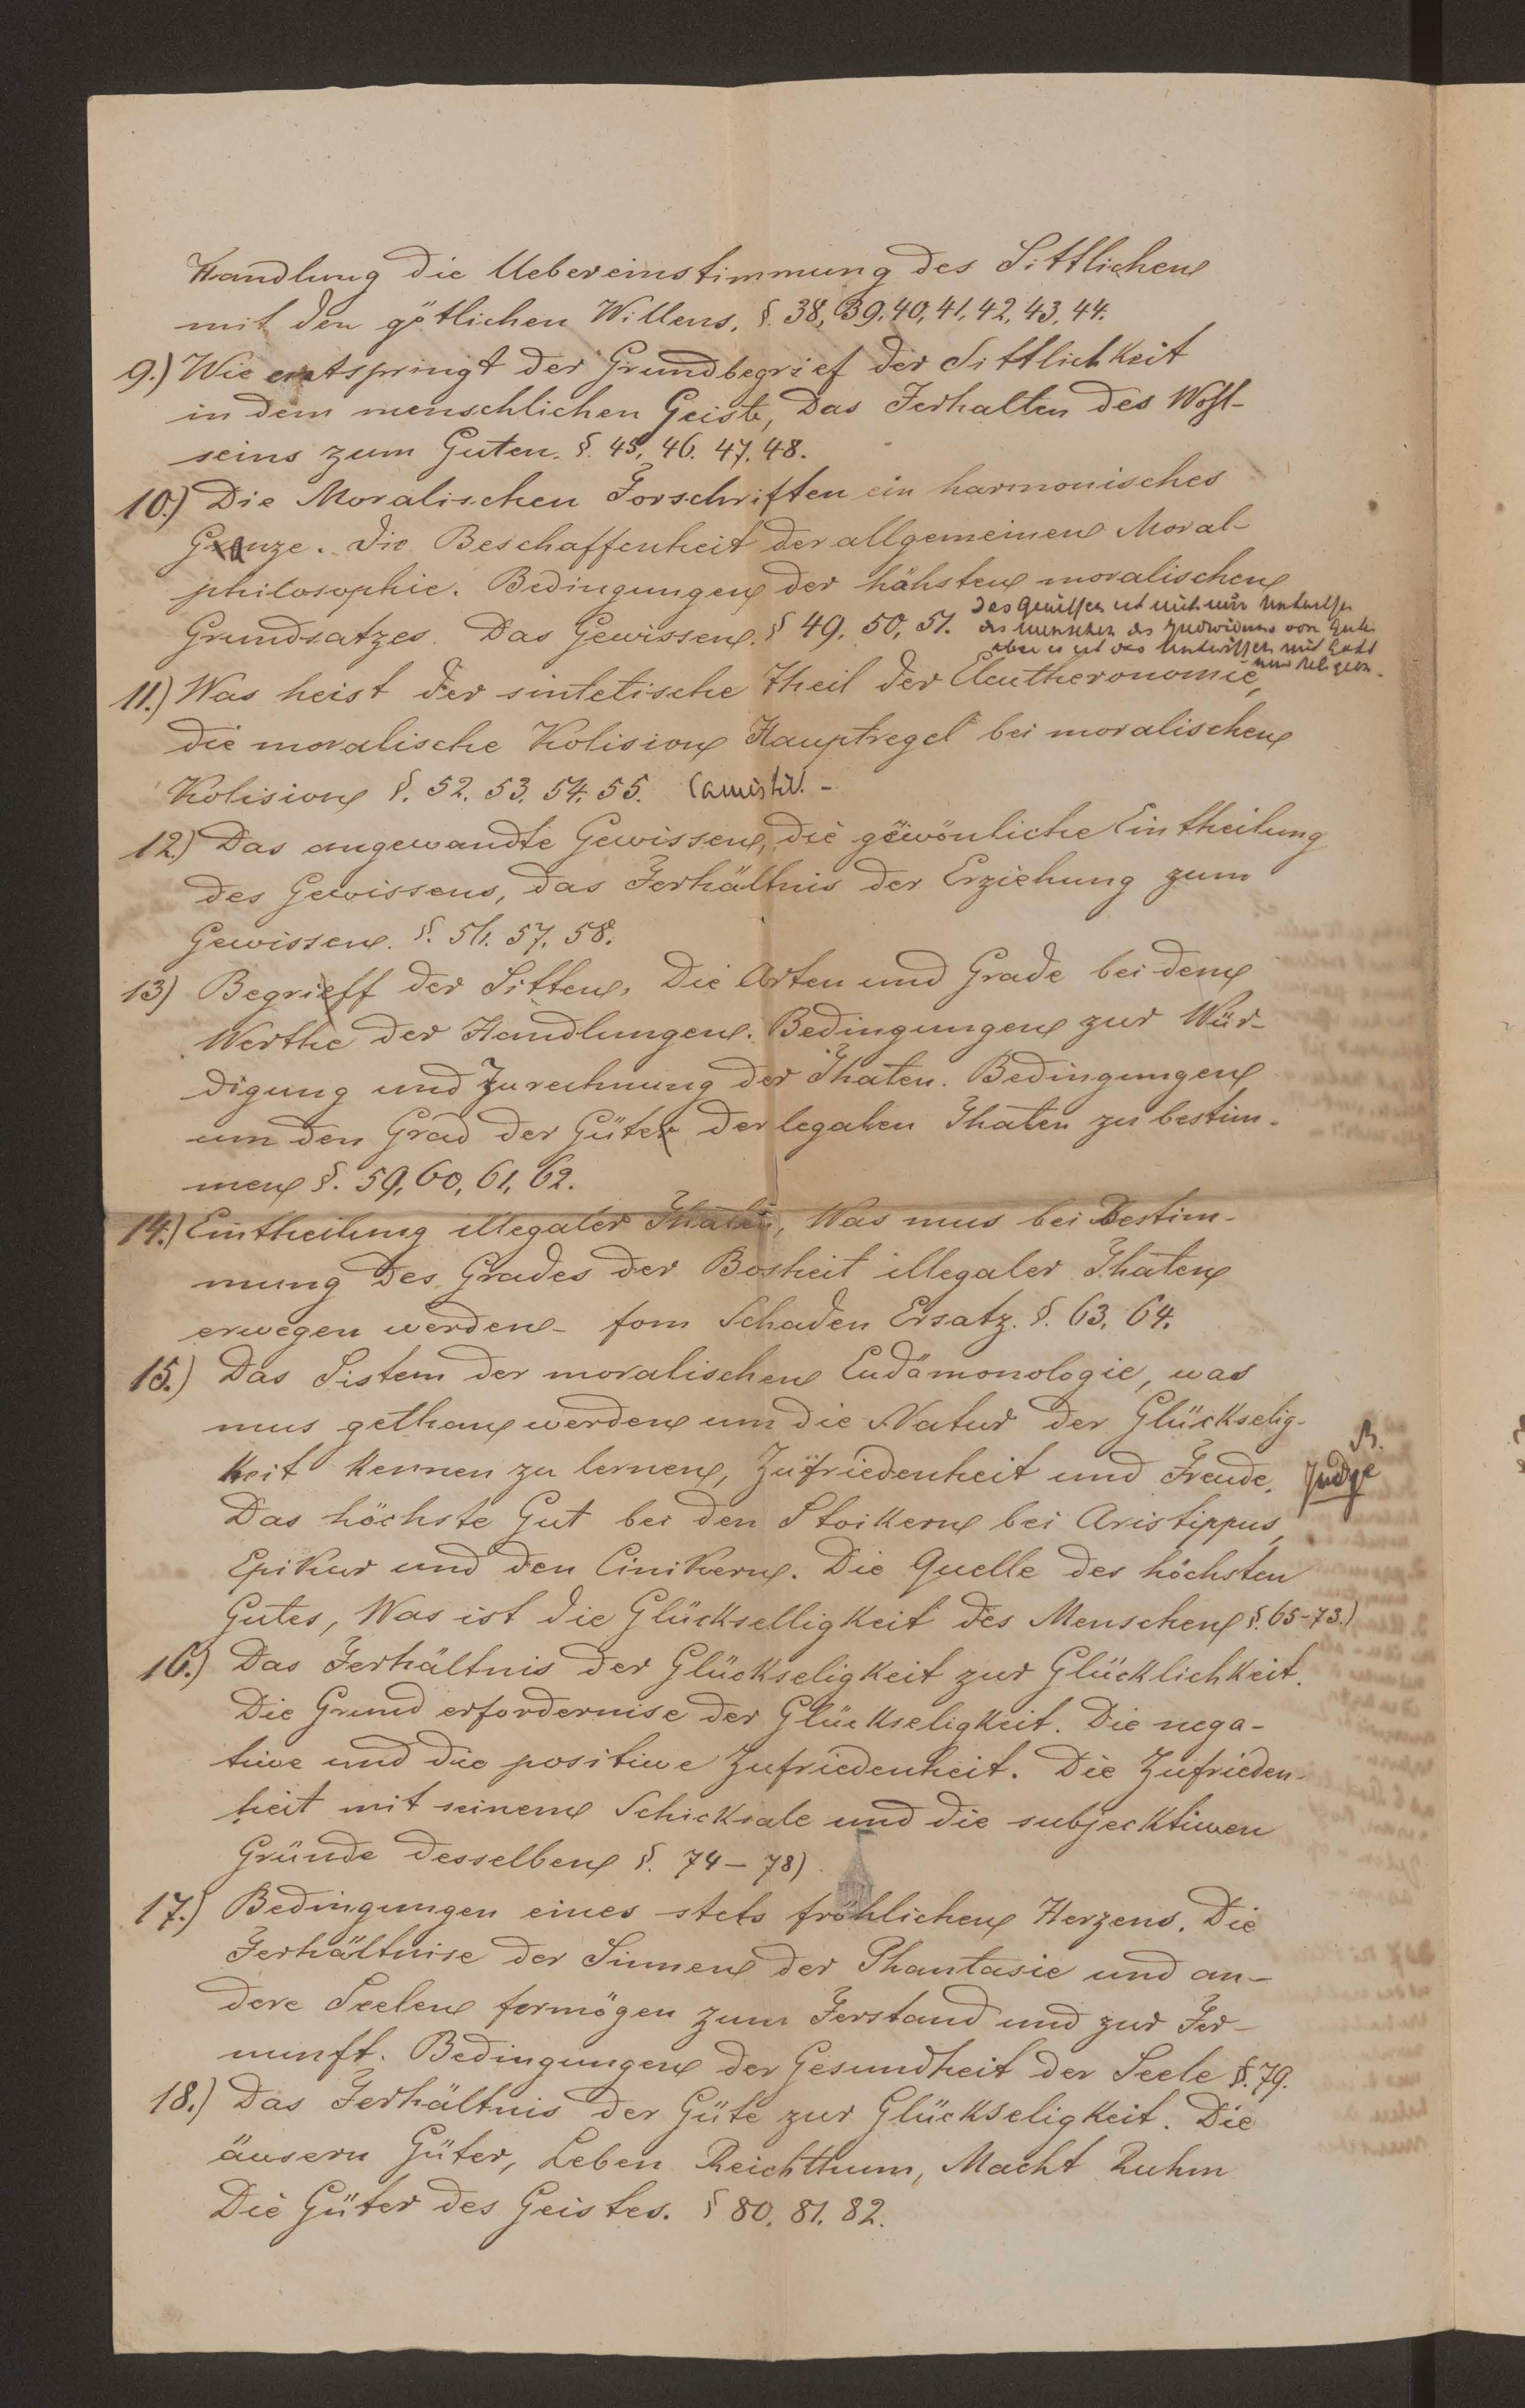 Handlung die Uebereinstimmung des Sittlichen
mit den götlichen Willens. §. 38, 39, 40, 41, 42, 43, 44.
9.) Wie entspringt der Grundbegrief der Sittlichkeit
in dem menschlichen Geiste, Das Ferhalten des Wohl-
seins zum Guten. §. 45, 46. 47. 48.
10.) Die Moralischen Forschriften ein harmonisches
Ganze. Die Beschaffenheit der allgemeinen Moral-
philosophie. Bedingungen der hähsten moralischen
Grundsatzes. Das Gewissen. § 49, 50, 51.
Das Gewissen ist nicht nur
des Menschen des von
aber es ist das mit Gott
11.) Was heist der sintetische Theil der Eleutheronomie,
die moralische Kolision Hauptregel bei moralischen
Kolision §. 52. 53. 54. 55.
12.) Das angewandte Gewissen, die gewönliche Eintheilung
des Gewissens, das Ferhältnis der Erziehung zum
Gewissen. §. 56. 57. 58.
13) Begriff der Sitten, Die Arten und Grade bei dem
Werthe der Handlungen. Bedingungen zur Wür-
digung und Zurechnung der Thaten. Bedingungen
um den Grad der Güte der legalen Thaten zu bestim-
men §. 59, 60, 61, 62.
14.) Eintheilung illegaler Thaten, Was mus bei Bestim-
mung des Grades der Bosheit illegaler Thaten
erwegen werden - fom Schaden Ersatz. §. 63, 64.
15.) Das Sistem der moralischen Eudämonologie, was
mus gethan werden um die Natur der Glückselig-
keit kennen zu lernen, Zufriedenheit und Freude.
Das höchste Gut bei den Stoikern bei Aristippus,
Epikur und den Cinikern. Die Quelle des höchsten
Gutes, Was ist die Glückselligkeit des Menschen §. 65-73.)
16.) Das Ferhältnis der Glückseligkeit zur Glücklichkeit.
Die Grund erfordernise der Glückseligkeit. Die nega-
tiwe und die positiwe Zufriedenheit. Die Zufrieden-
heit mit seinem Schicksale und die subjecktiwen
Gründe desselben §. 74-78)
17.) Bedingungen eines stets fröhlichen Herzens. Die
Ferhältnise der Sinnen der Phantasie und an-
dere Seelen formögen zum Ferstand und zur Fer-
nunft. Bedingungen der Gesundheit der Seele §. 79.
18.) Das Ferhältnis der Güte zur Glückseligkeit. Die
äusern Güter, Leben Reichthum, Macht Ruhm
Die Güter des Geistes. § 80. 81. 82.